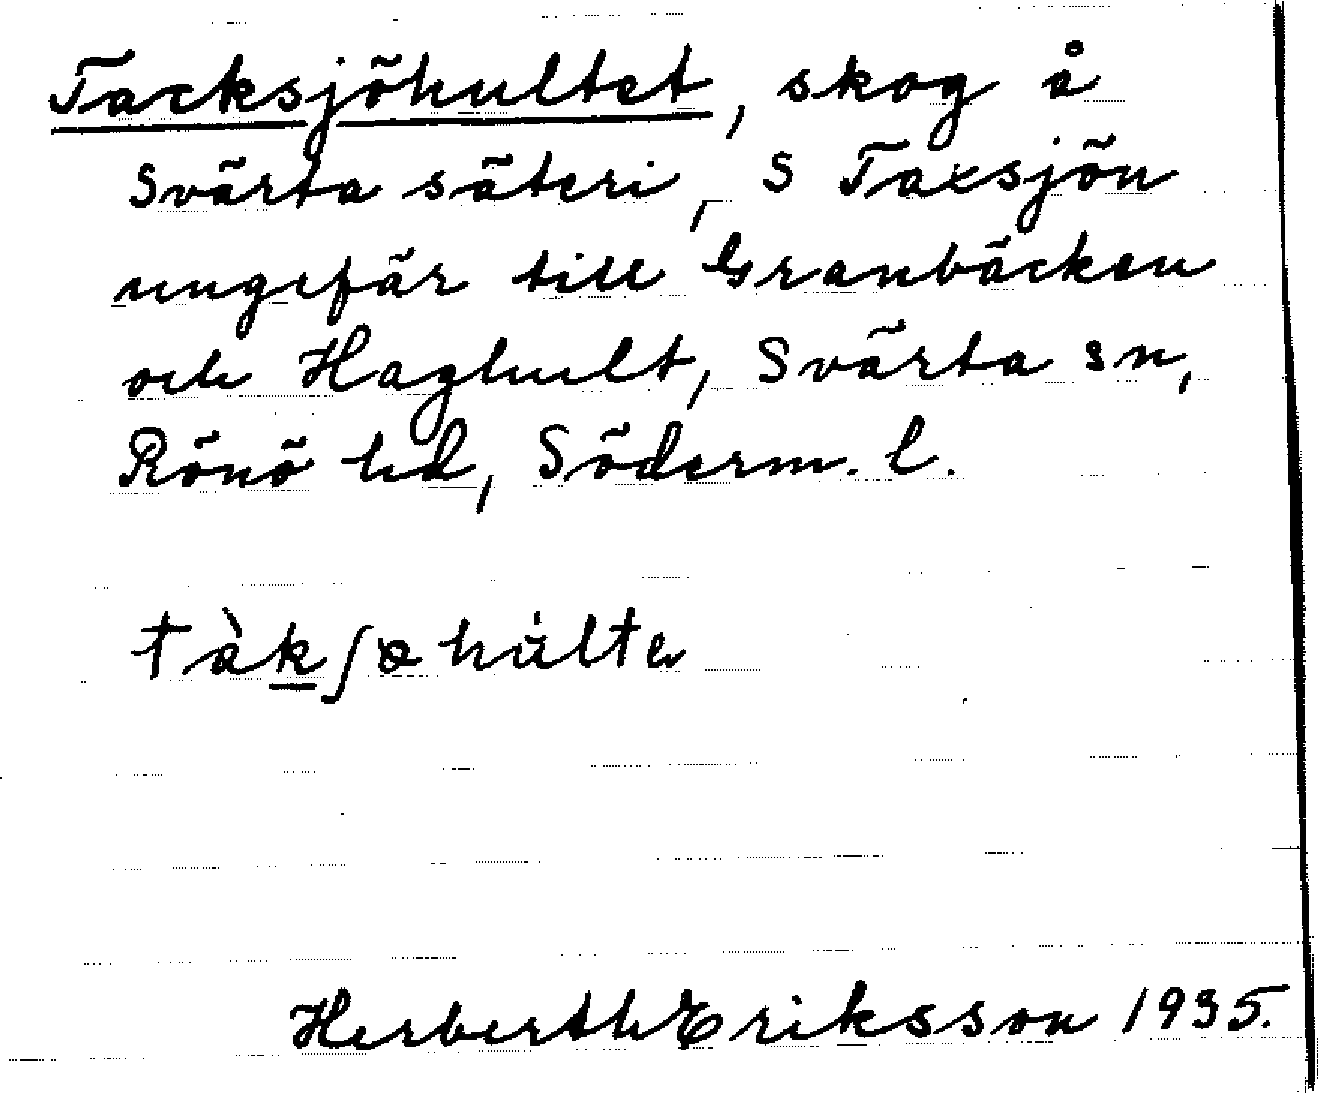 Tacksjöhultet, skog å
Svärta säteri, S Taxsjön
ungefär till Granbäcken
och Haghult, Svärta sn,
Rönö hd, Söderm. l.
Herberth Eriksson 1935.